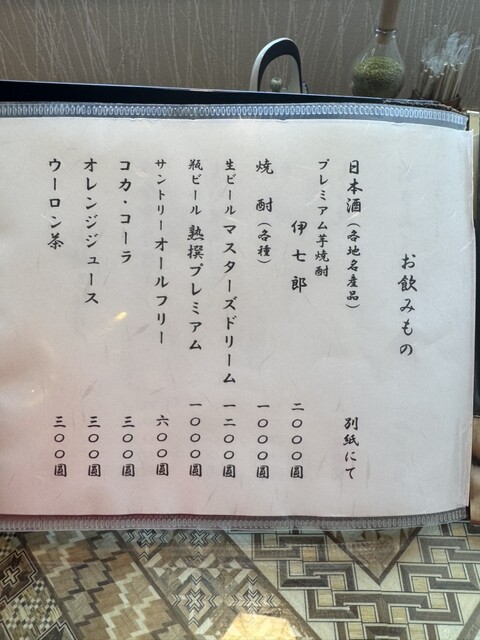 お飲みもの
日本酒（各地名産品） 別紙にて
プレミアム芋焼酎
伊七郎 二〇〇〇圓
焼酎（各種） 一〇〇〇圓
生ビール マスターズドリーム 一二〇〇圓
瓶ビール 熟撰プレミアム 一〇〇〇圓
サントリー オールフリー 六〇〇圓
コカ・コーラ 三〇〇圓
オレンジジュース 三〇〇圓
ウーロン茶 三〇〇圓